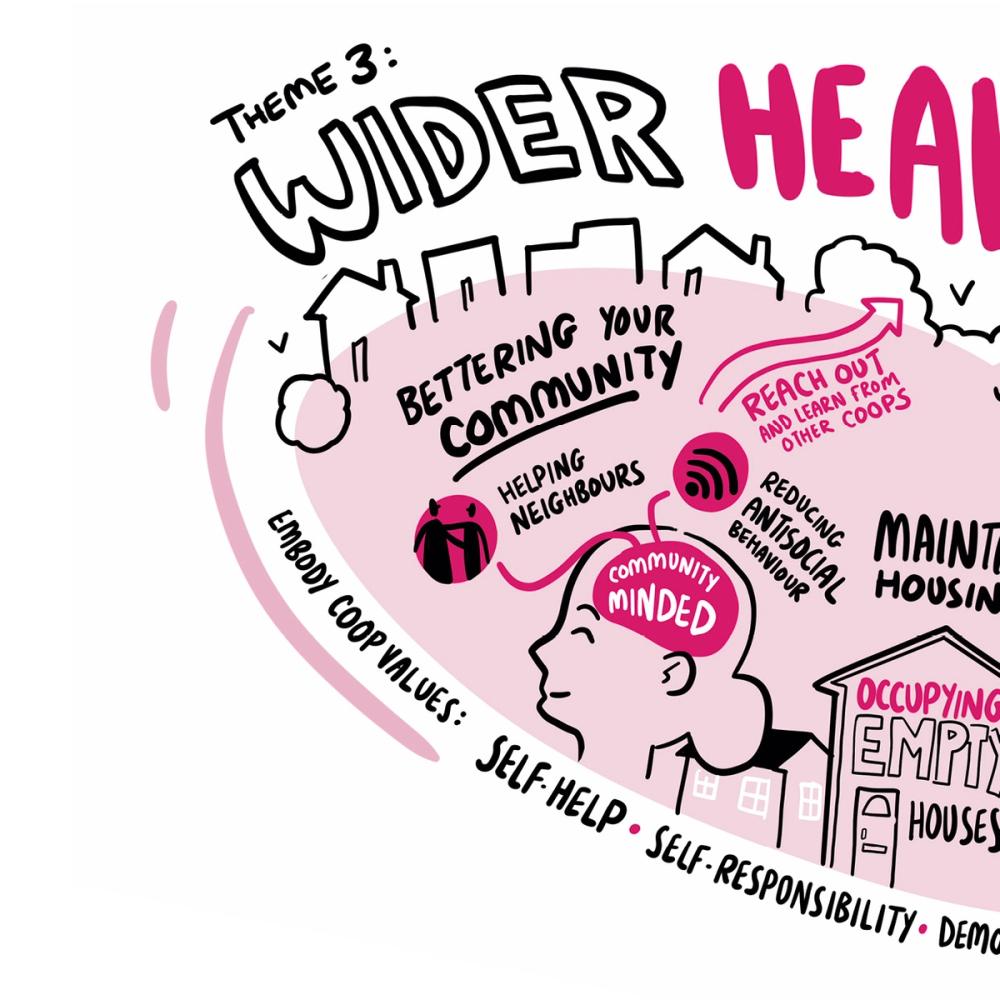 THEME 3:
WIDER HEAL
BETTERING YOUR
COMMUNITY
REACH OUT
AND LEARN FROM
OTHER COOPS
HELPING
NEIGHBOURS
REDUCING
ANTISOCIAL
BEHAVIOUR
COMMUNITY
MINDED
MAINTE
HOUSIN
OCCUPYING
EMPTY
HOUSES
EMBODY COOP VALUES:
SELF-HELP • SELF-RESPONSIBILITY • DEMO